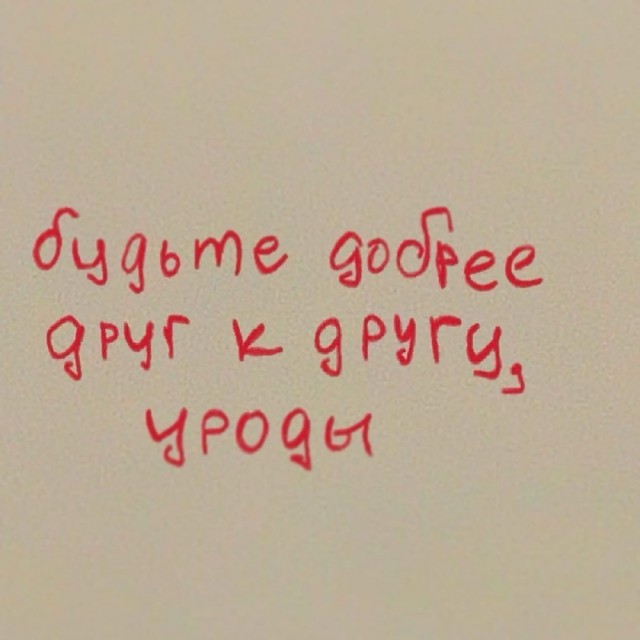 будьте добрее
друг к другу,
уроды